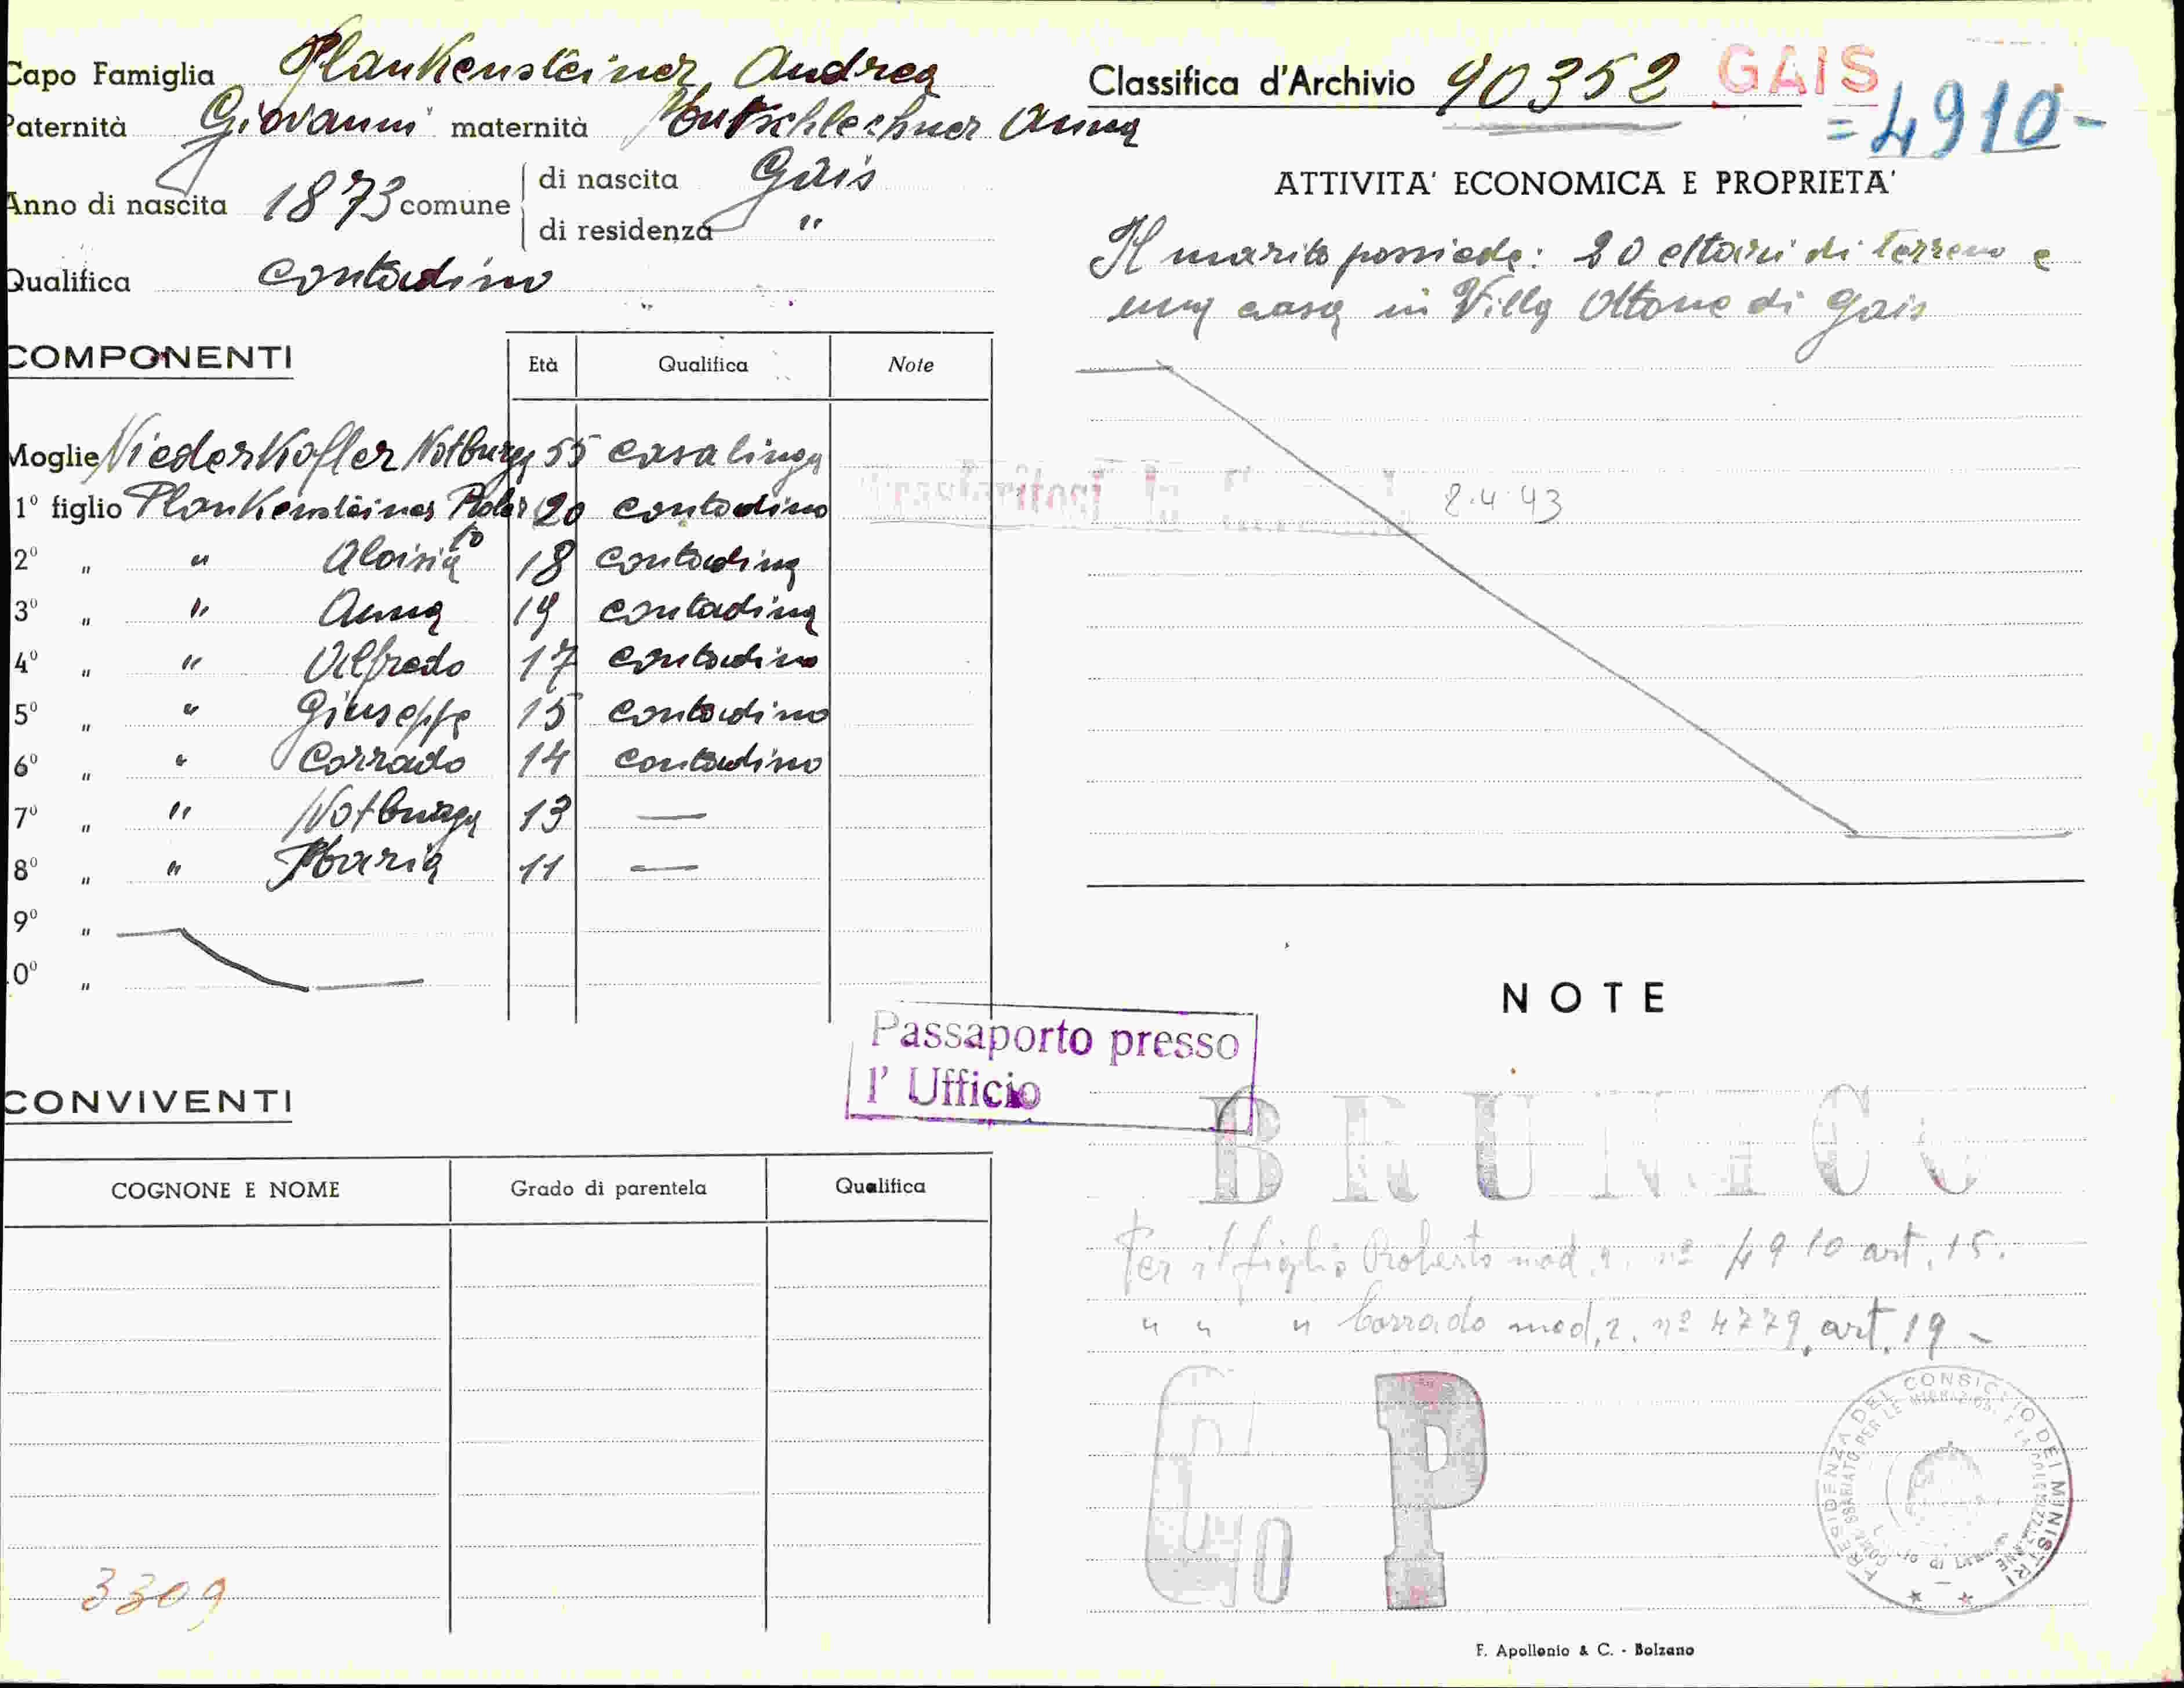 Capo Famiglia Plankensteiner Andrea
Paternità Giovanni maternità Mutschlechner Anna
Anno di nascita 1873 comune di nascita Gais
di residenza "
Qualifica contadino
COMPONENTI Età Qualifica Note
Moglie Niederkofler Notburga 55 casalinga
1º figlio Plankensteiner Rober to 20 contadino
2º " " Aloisia 18 contadina
3º " " Anna 19 contadina
4º " " Alfredo 17 contadino
5º " " Giuseppe 15 contadino
6º " " Corrado 14 contadino
7º " " Notburga 13 —
8º " " Maria 11 —
9º "
0º "
Passaporto presso
l' Ufficio
CONVIVENTI
COGNONE E NOME Grado di parentela Qualifica
3309
Classifica d'Archivio 90352 GAIS
=4910-
ATTIVITA' ECONOMICA E PROPRIETA'
Il marito possiede: 20 ettari di terreno e
una casa in Villa Ottone di Gais
2.4.43
NOTE
BRUNICO
Per il figlio Roberto mod. 2. nº 4910 art. 15.
" " " Corrado mod. 2. nº 4779, art. 19 -
Co P
PRESIDENZA DEL CONSIGLIO DEI MINISTRI
F. Apollonio & C. - Bolzano